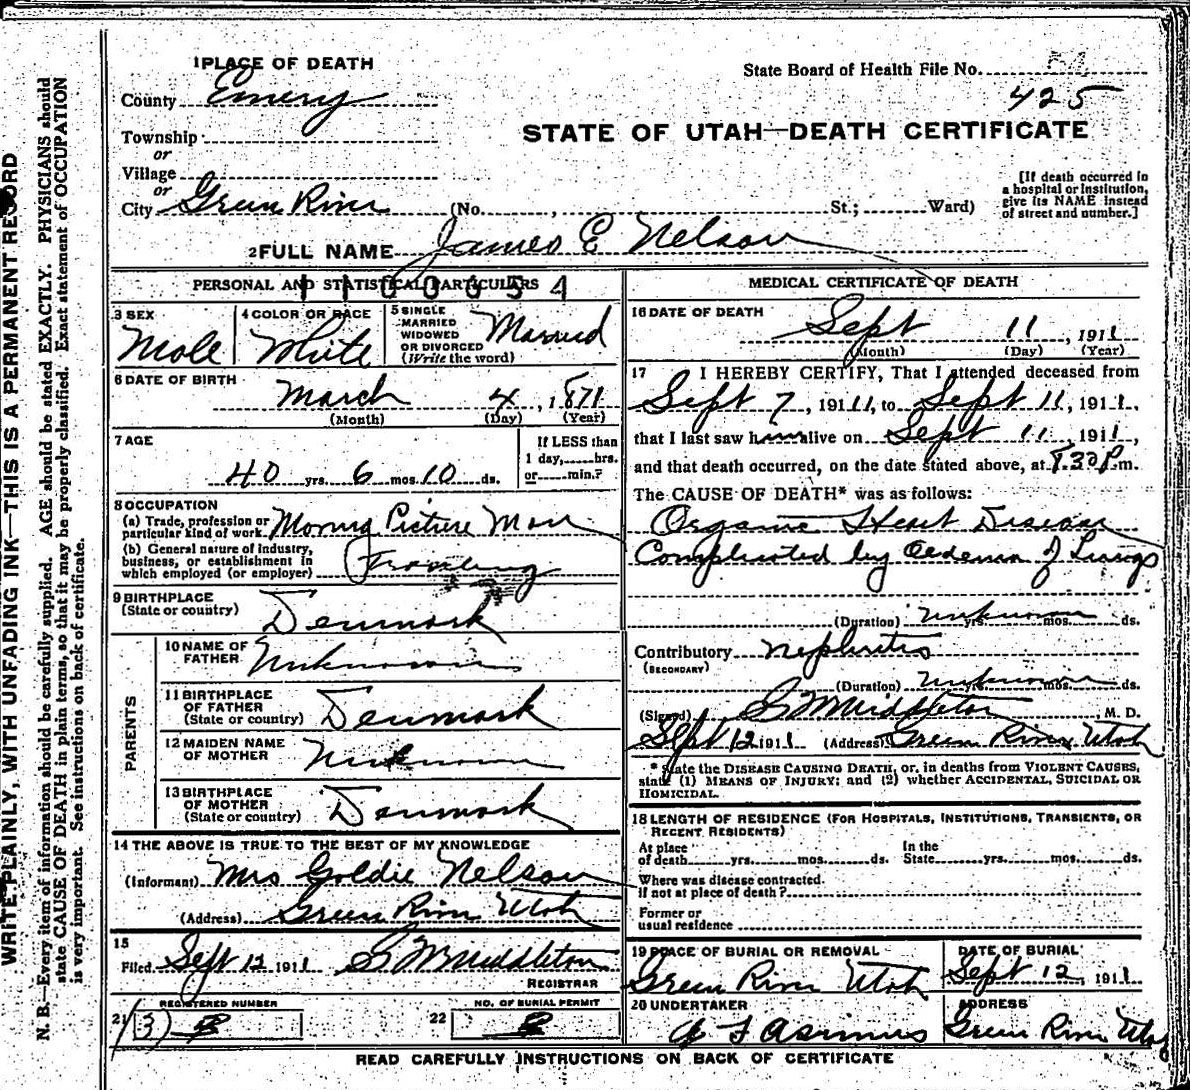 WRITE PLAINLY, WITH UNFADING INK—THIS IS A PERMANENT RECORD
N. B.—Every item of information should be carefully supplied. AGE should be stated EXACTLY. PHYSICIANS should
state CAUSE OF DEATH in plain terms, so that it may be properly classified. Exact statement of OCCUPATION
is very important. See instructions on back of certificate.
1 PLACE OF DEATH
State Board of Health File No.
425
County Emery
STATE OF UTAH—DEATH CERTIFICATE
Township
or
Village
or
City Green River (No. , St.; Ward)
[If death occurred in
a hospital or institution,
give its NAME instead
of street and number.]
2 FULL NAME James E Nelson
PERSONAL AND STATISTICAL PARTICULARS
1100654
3 SEX
Male
4 COLOR OR RACE
White
5 SINGLE
MARRIED
WIDOWED
OR DIVORCED
(Write the word)
Married
6 DATE OF BIRTH
March 4, 1871
(Month) (Day) (Year)
7 AGE
40 yrs. 6 mos. 10 ds.
If LESS than
1 day,....hrs.
or....min.?
8 OCCUPATION
(a) Trade, profession or
particular kind of work Moving Picture Man
(b) General nature of industry,
business, or establishment in
which employed (or employer)
9 BIRTHPLACE
(State or country) Denmark
PARENTS
10 NAME OF
FATHER Unknown
11 BIRTHPLACE
OF FATHER
(State or country) Denmark
12 MAIDEN NAME
OF MOTHER Unknown
13 BIRTHPLACE
OF MOTHER
(State or country) Denmark
14 THE ABOVE IS TRUE TO THE BEST OF MY KNOWLEDGE
(Informant) Mrs Goldie Nelson
(Address) Green River Utah
15
Filed Sept 12 1911 Middleton
REGISTRAR
REGISTERED NUMBER
21 (3)
NO. OF BURIAL PERMIT
22
MEDICAL CERTIFICATE OF DEATH
16 DATE OF DEATH
Sept 11, 1911
(Month) (Day) (Year)
17 I HEREBY CERTIFY, That I attended deceased from
Sept 7, 1911, to Sept 11, 1911,
that I last saw him alive on Sept 11 1911,
and that death occurred, on the date stated above, at 8.30 P.m.
The CAUSE OF DEATH* was as follows:
Organic Heart Disease
Complicated by Oedema of Lungs
(Duration) unknown yrs. mos. ds.
Contributory Nephritis
(SECONDARY)
(Duration) unknown yrs. mos. ds.
(Signed) Middleton M. D.
Sept 12 1911 (Address) Green River, Utah
* State the DISEASE CAUSING DEATH, or, in deaths from VIOLENT CAUSES,
state (1) MEANS OF INJURY; and (2) whether ACCIDENTAL, SUICIDAL OR
HOMICIDAL.
18 LENGTH OF RESIDENCE (FOR HOSPITALS, INSTITUTIONS, TRANSIENTS, OR
RECENT RESIDENTS)
At place
of death yrs. mos. ds.
In the
State yrs. mos. ds.
Where was disease contracted,
if not at place of death?
Former or
usual residence
19 PLACE OF BURIAL OR REMOVAL
Green River Utah
DATE OF BURIAL
Sept 12, 1911
20 UNDERTAKER
ADDRESS
Green River Utah
READ CAREFULLY INSTRUCTIONS ON BACK OF CERTIFICATE